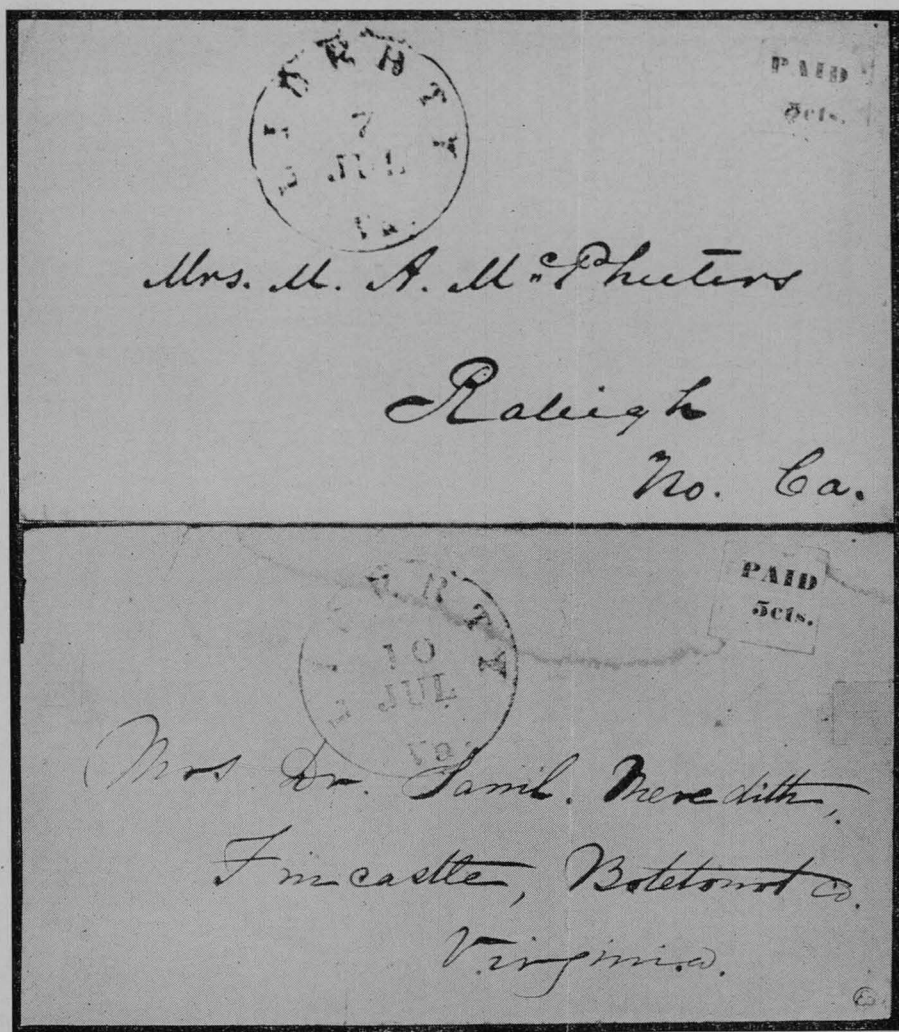 LIBERTY
7
JUL
Va.
PAID
5cts.
Mrs. M. A. McPheeters
Raleigh
No. Ca.
LIBERTY
10
JUL
Va.
PAID
5cts.
Mrs Dr. Saml. Meredith,
Fincastle, Botetourt co.
Virginia.